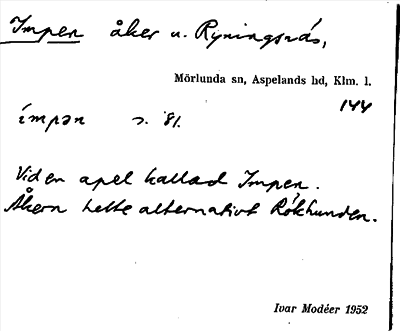 Impen åker u. Ryningsnäs,
Mörlunda sn, Aspelands hd, Klm. l.
144
ímpən s. 81.
Vid en apel kallad Impen.
Åkern hette alternativt Rökhunden.
Ivar Modéer 1952